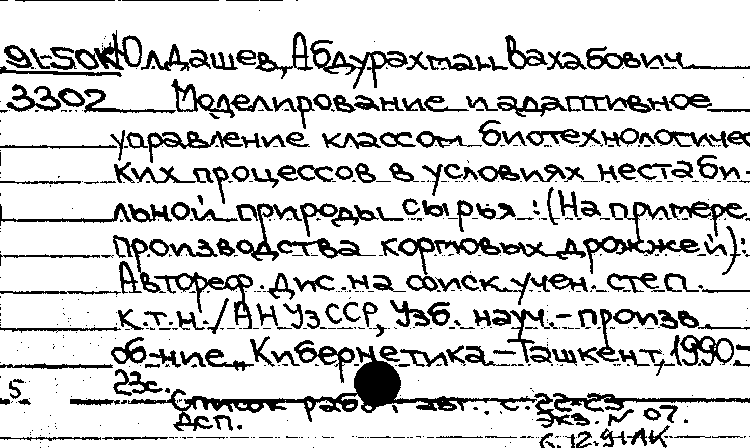 91-50К Юлдашев, Абдурахман Вахабович
3302 Моделирование и адаптивное
управление классом биотехнологичес
ких процессов в условиях нестаби-
льной природы сырья : (На примере
производства кормовых дрожжей):
Автореф. дис. на соиск. учен. степ.
к.т.н. / АН УзССР, Узб. науч.-произв.
об-ние „Кибернетика.-Ташкент, 1990-
23с.
5 Список работ авт.: с. 22-23
ДСП. Экз. N 07.
6.12.91 ЛК